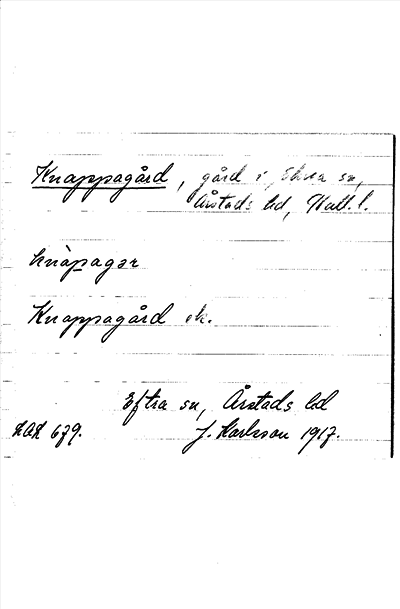 Knappagård, gård i Eftra sn,
Årstads hd, Hall. l.
knàpagər
Knappagård ek.
Eftra sn, Årstads hd
LAL 679. J. Karlsson 1917.